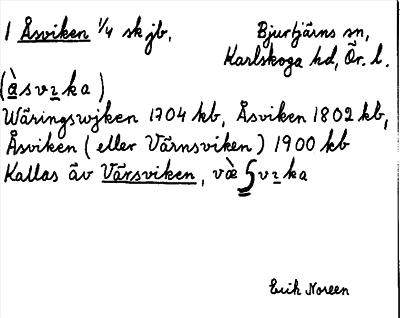 1 Åsviken 1/4 sk jb,
Bjurtjärns sn,
Karlskoga hd, Ör. l.
(å̀svıka)
Wäringswjken 1704 kb, Åsviken 1802 kb,
Åsviken (eller Värnsviken) 1900 kb
Kallas äv Värsviken, væ̀ʃvıka
Erik Noreen